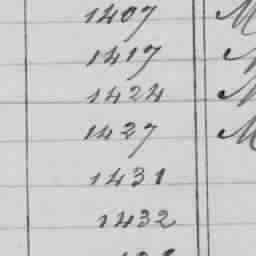 1407
1417
1424
1427
1431
1432